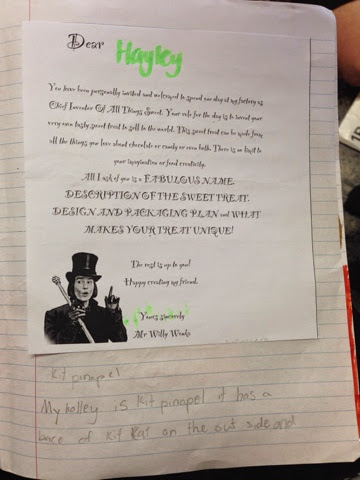 Dear Hayley
You have been personally invited and welcomed to spend one day at my factory as
Chief Inventor Of All Things Sweet. Your role for the day is to invent your
very own tasty sweet treat to sell to the world. This sweet treat can be made from
all the things you love about chocolate or candy or even both. There is no limit to
your imagination or food creativity.
All I ask of you is a FABULOUS NAME,
DESCRIPTION OF THE SWEET TREAT,
DESIGN AND PACKAGING PLAN and WHAT
MAKES YOUR TREAT UNIQUE!
The rest is up to you!
Happy creating my friend,
Yours sincerely
Mr Willy Wonka
Kit pinapel
My holley is Kit pinapel it has a
bace of Kit Kat on the out side and